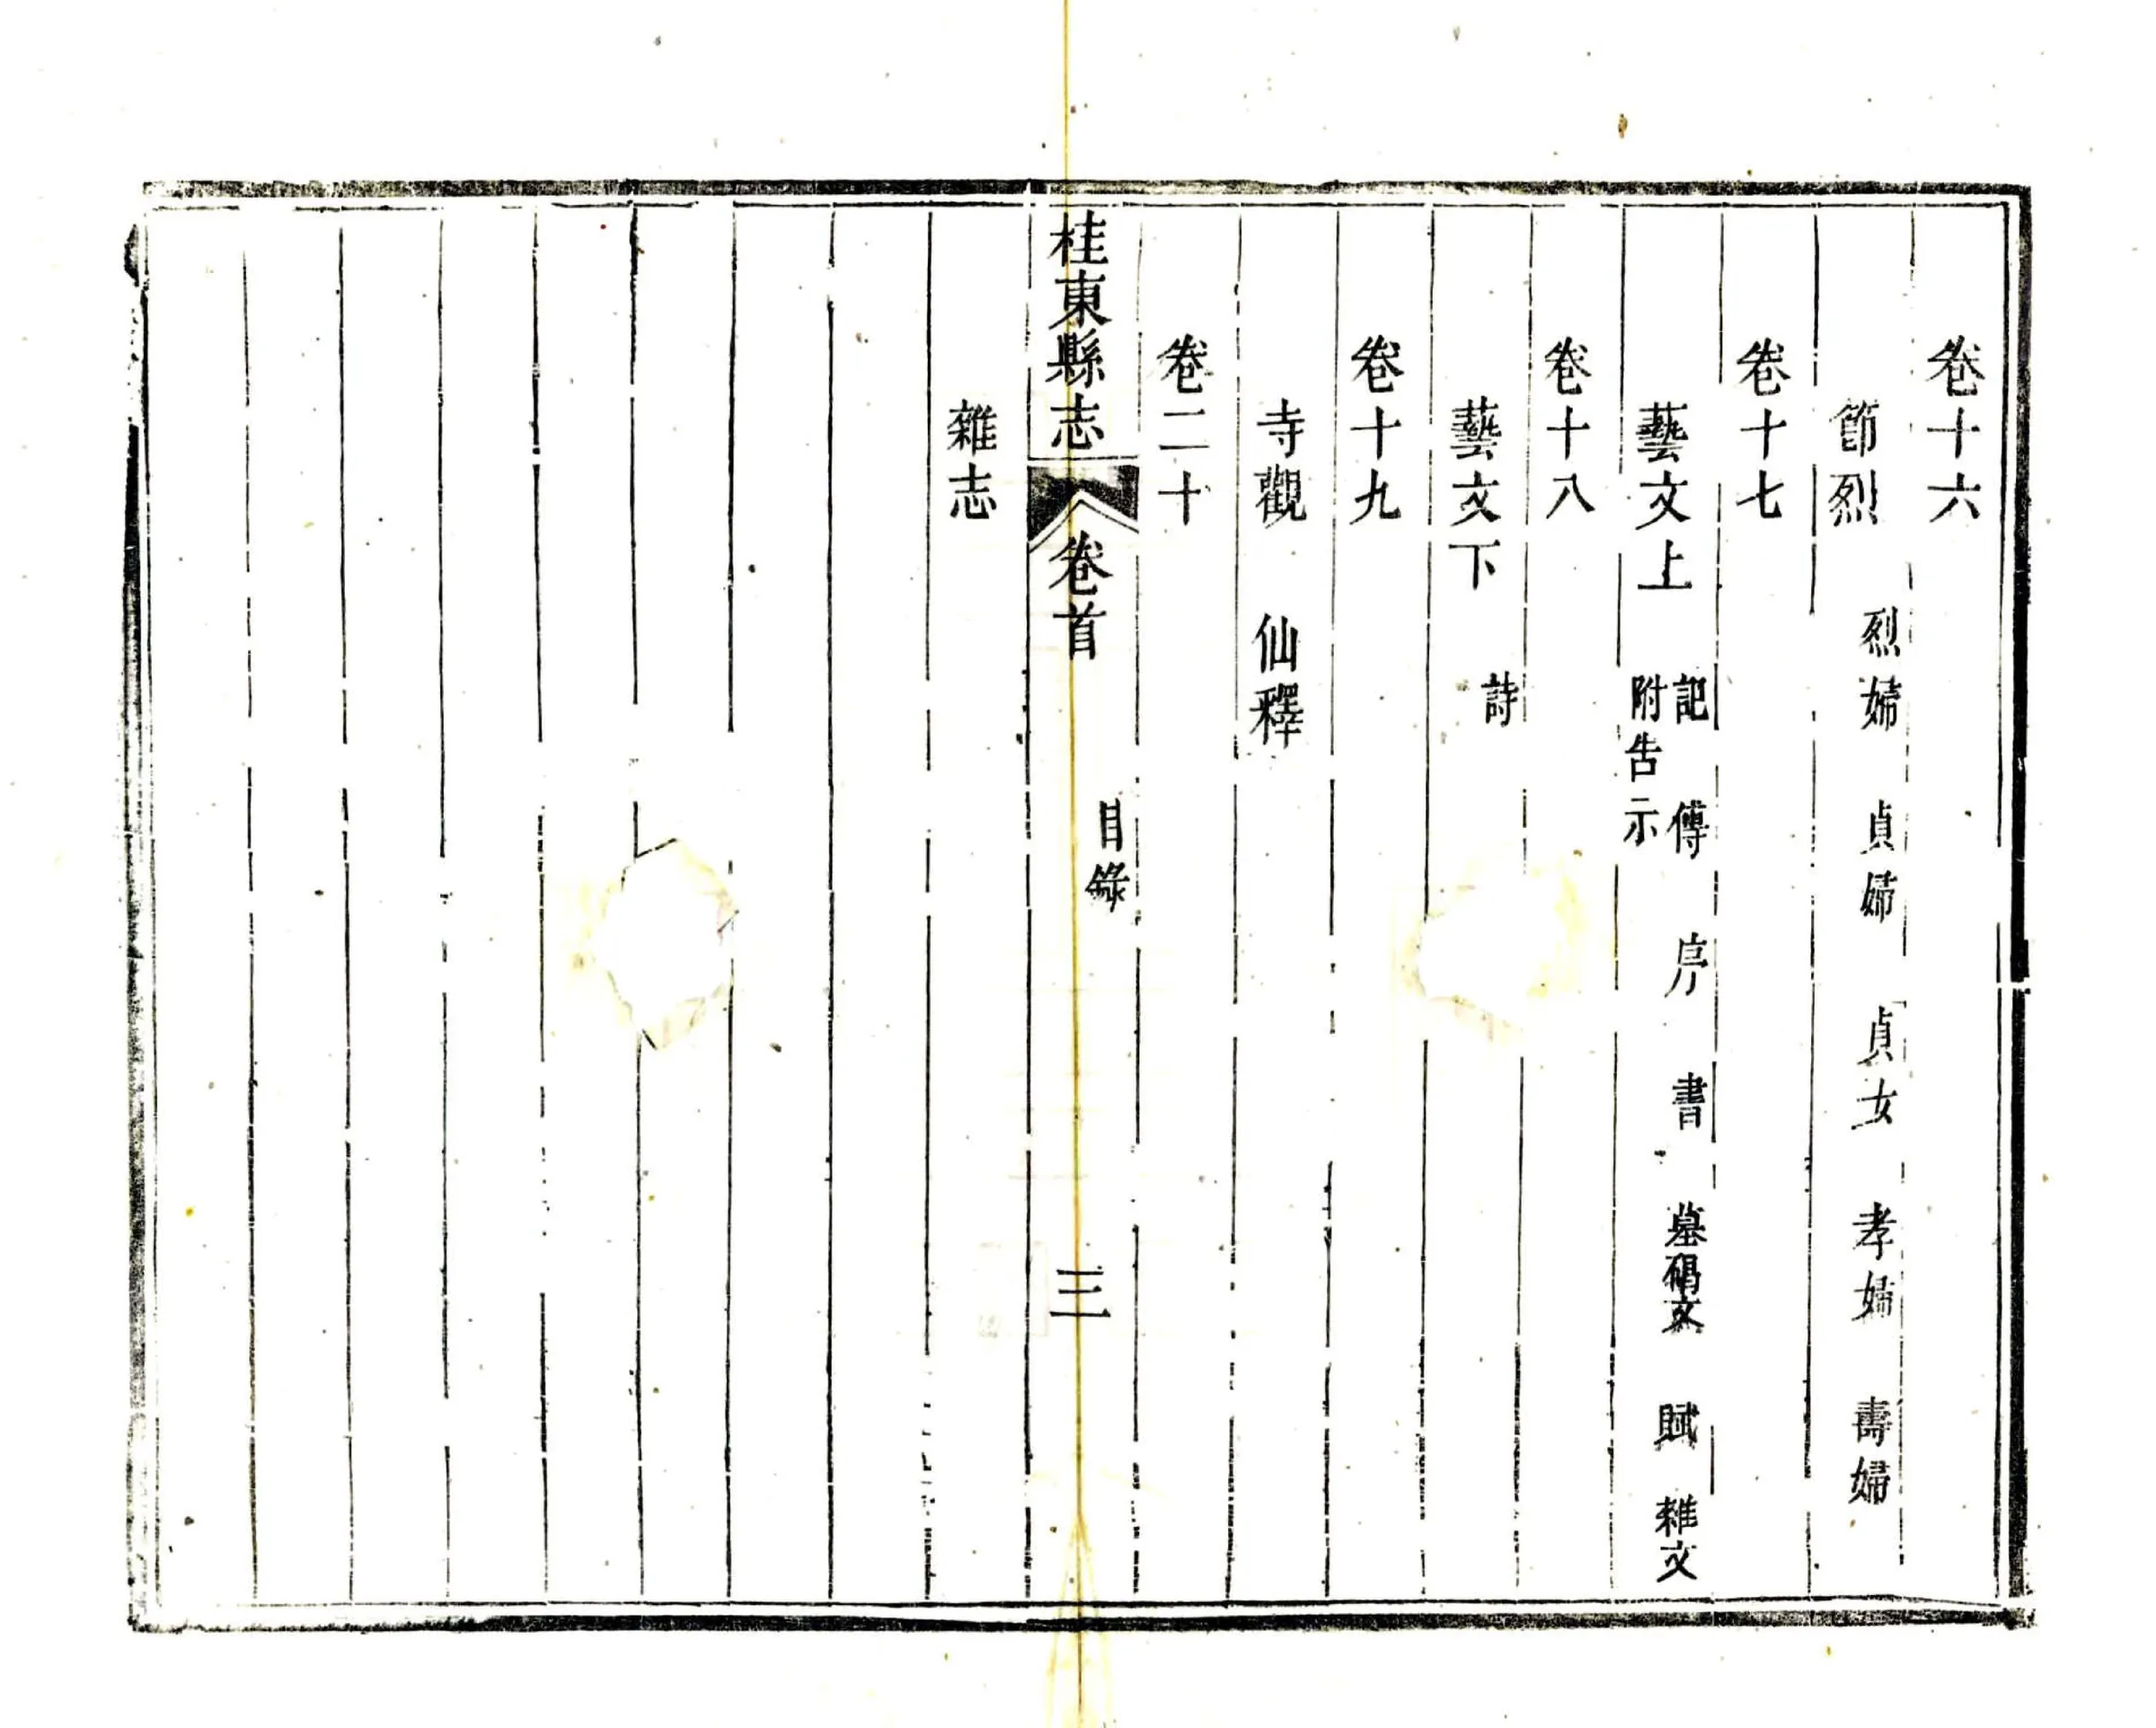 卷十六
節烈 烈婦 貞婦 貞女 孝婦 壽婦
卷十七
藝文上 記 傳 序 書 墓碣文 賦 雜文
附告示
卷十八
藝文下 詩
卷十九
寺觀 仙釋
卷二十
桂東縣志 卷首 目錄 三
雜志